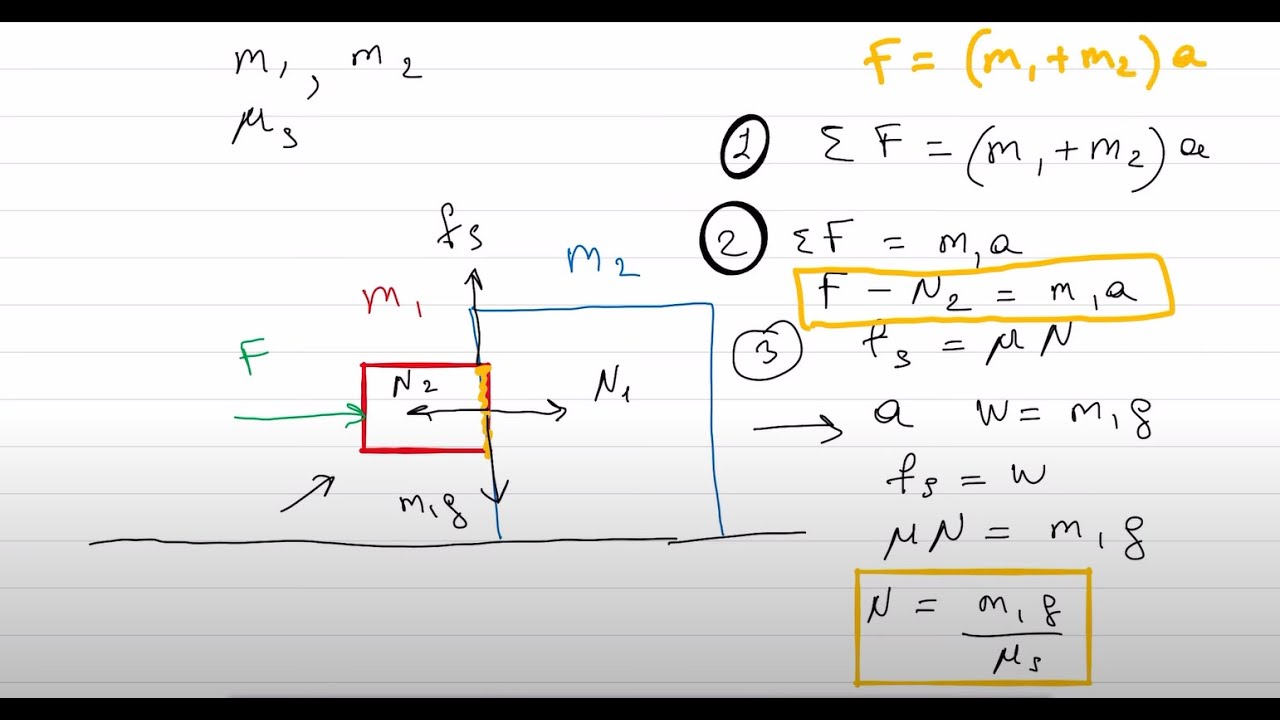 m₁, m₂
μₛ
F = (m₁+m₂)a
1 Σ F = (m₁+m₂)a
2 ΣF = m₁a
F − N₂ = m₁a
3 fₛ = μN
→ a W = m₁g
fₛ = W
μN = m₁g
N = m₁g / μₛ
fₛ
m₂
m₁
F
N₂
N₁
m₁g